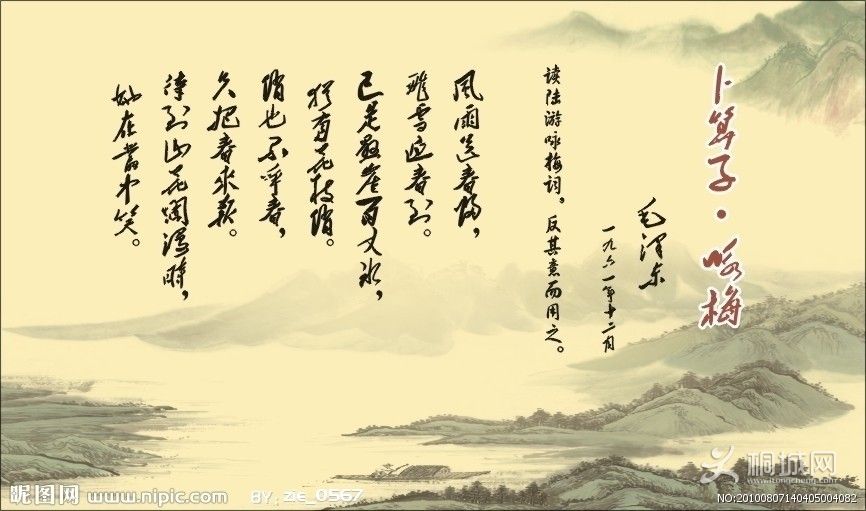 卜算子·咏梅
毛泽东
一九六一年十二月
读陆游咏梅词，反其意而用之。
风雨送春归，
飞雪迎春到。
已是悬崖百丈冰，
犹有花枝俏。
俏也不争春，
只把春来报。
待到山花烂漫时，
她在丛中笑。
昵图网 www.nipic.com BY: zie_0567
桐城网
itongcheng.com
NO:20100807140405004082